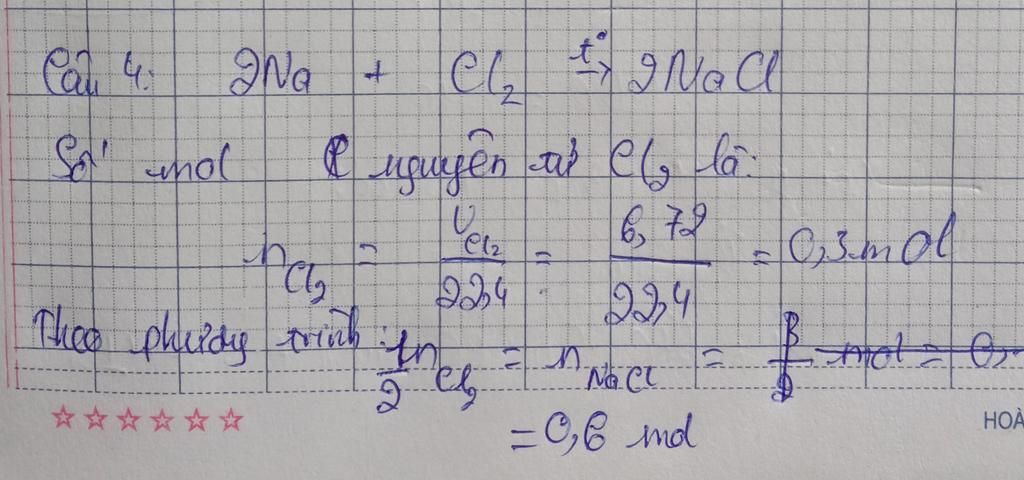 Câu 4: 2Na + Cl₂ t°→ 2NaCl
Số mol nguyên tử Cl₂ là:
n Cl₂ = V Cl₂ / 22,4 = 6,72 / 22,4 = 0,3 mol
Theo phương trình: 1/2 n Cl₂ = n NaCl = mol = 0,
= 0,6 mol
HOÀ